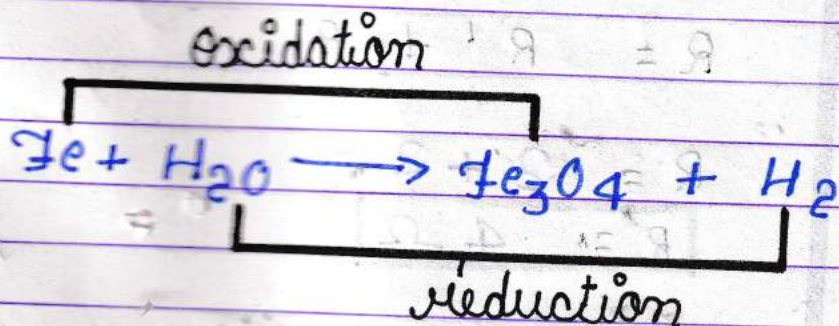 oxidation
Fe + H2O → Fe3O4 + H2
reduction